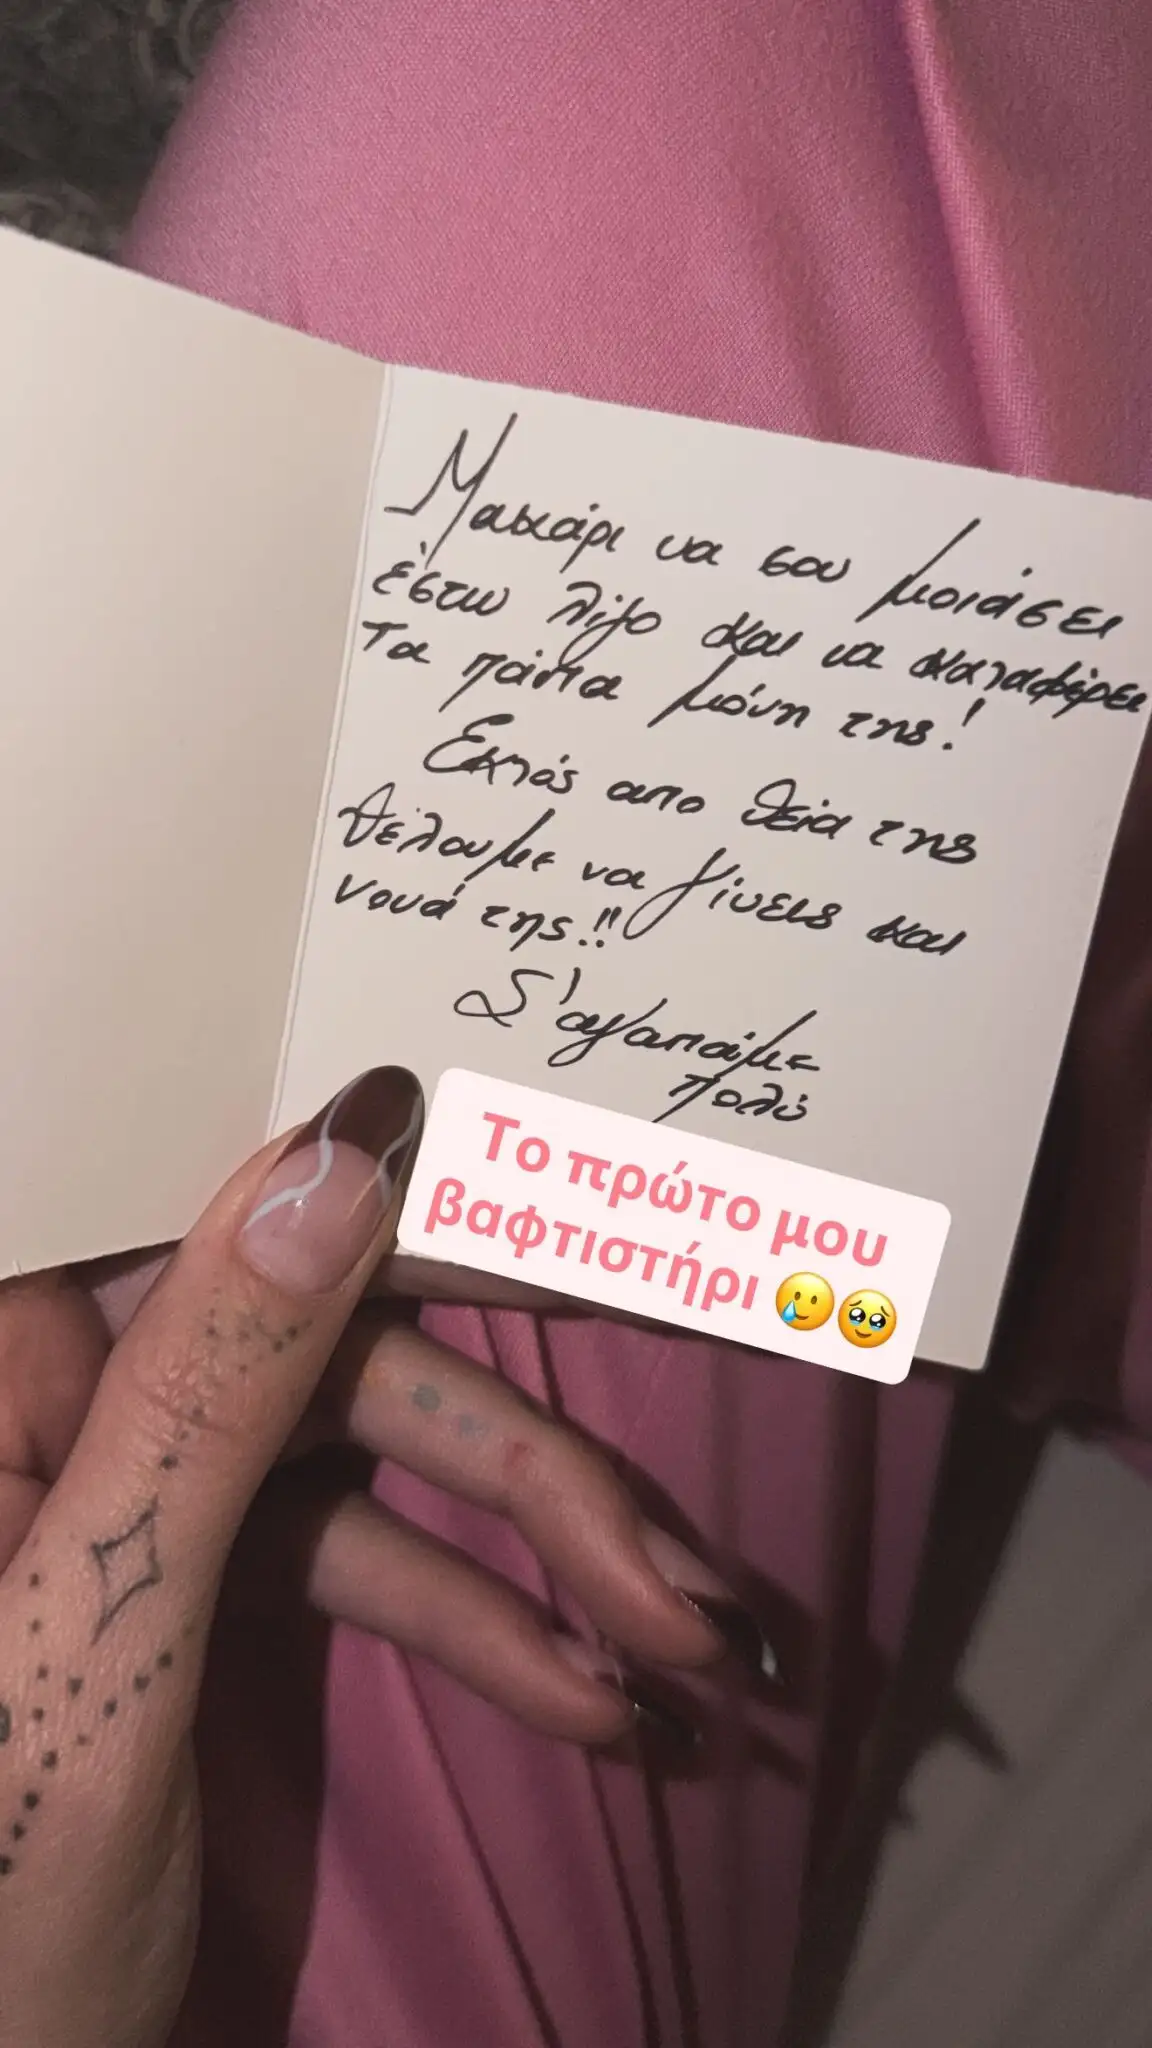 Μακάρι να σου μοιάσει
έστω λίγο και να καταφέρει
τα πάντα μόνη της!
Εκτός απο θεία της
θέλουμε να γίνεις και
νουά της!!
Σ'αγαπάμε
πολύ
Το πρώτο μου
βαφτιστήρι 🥲🥹